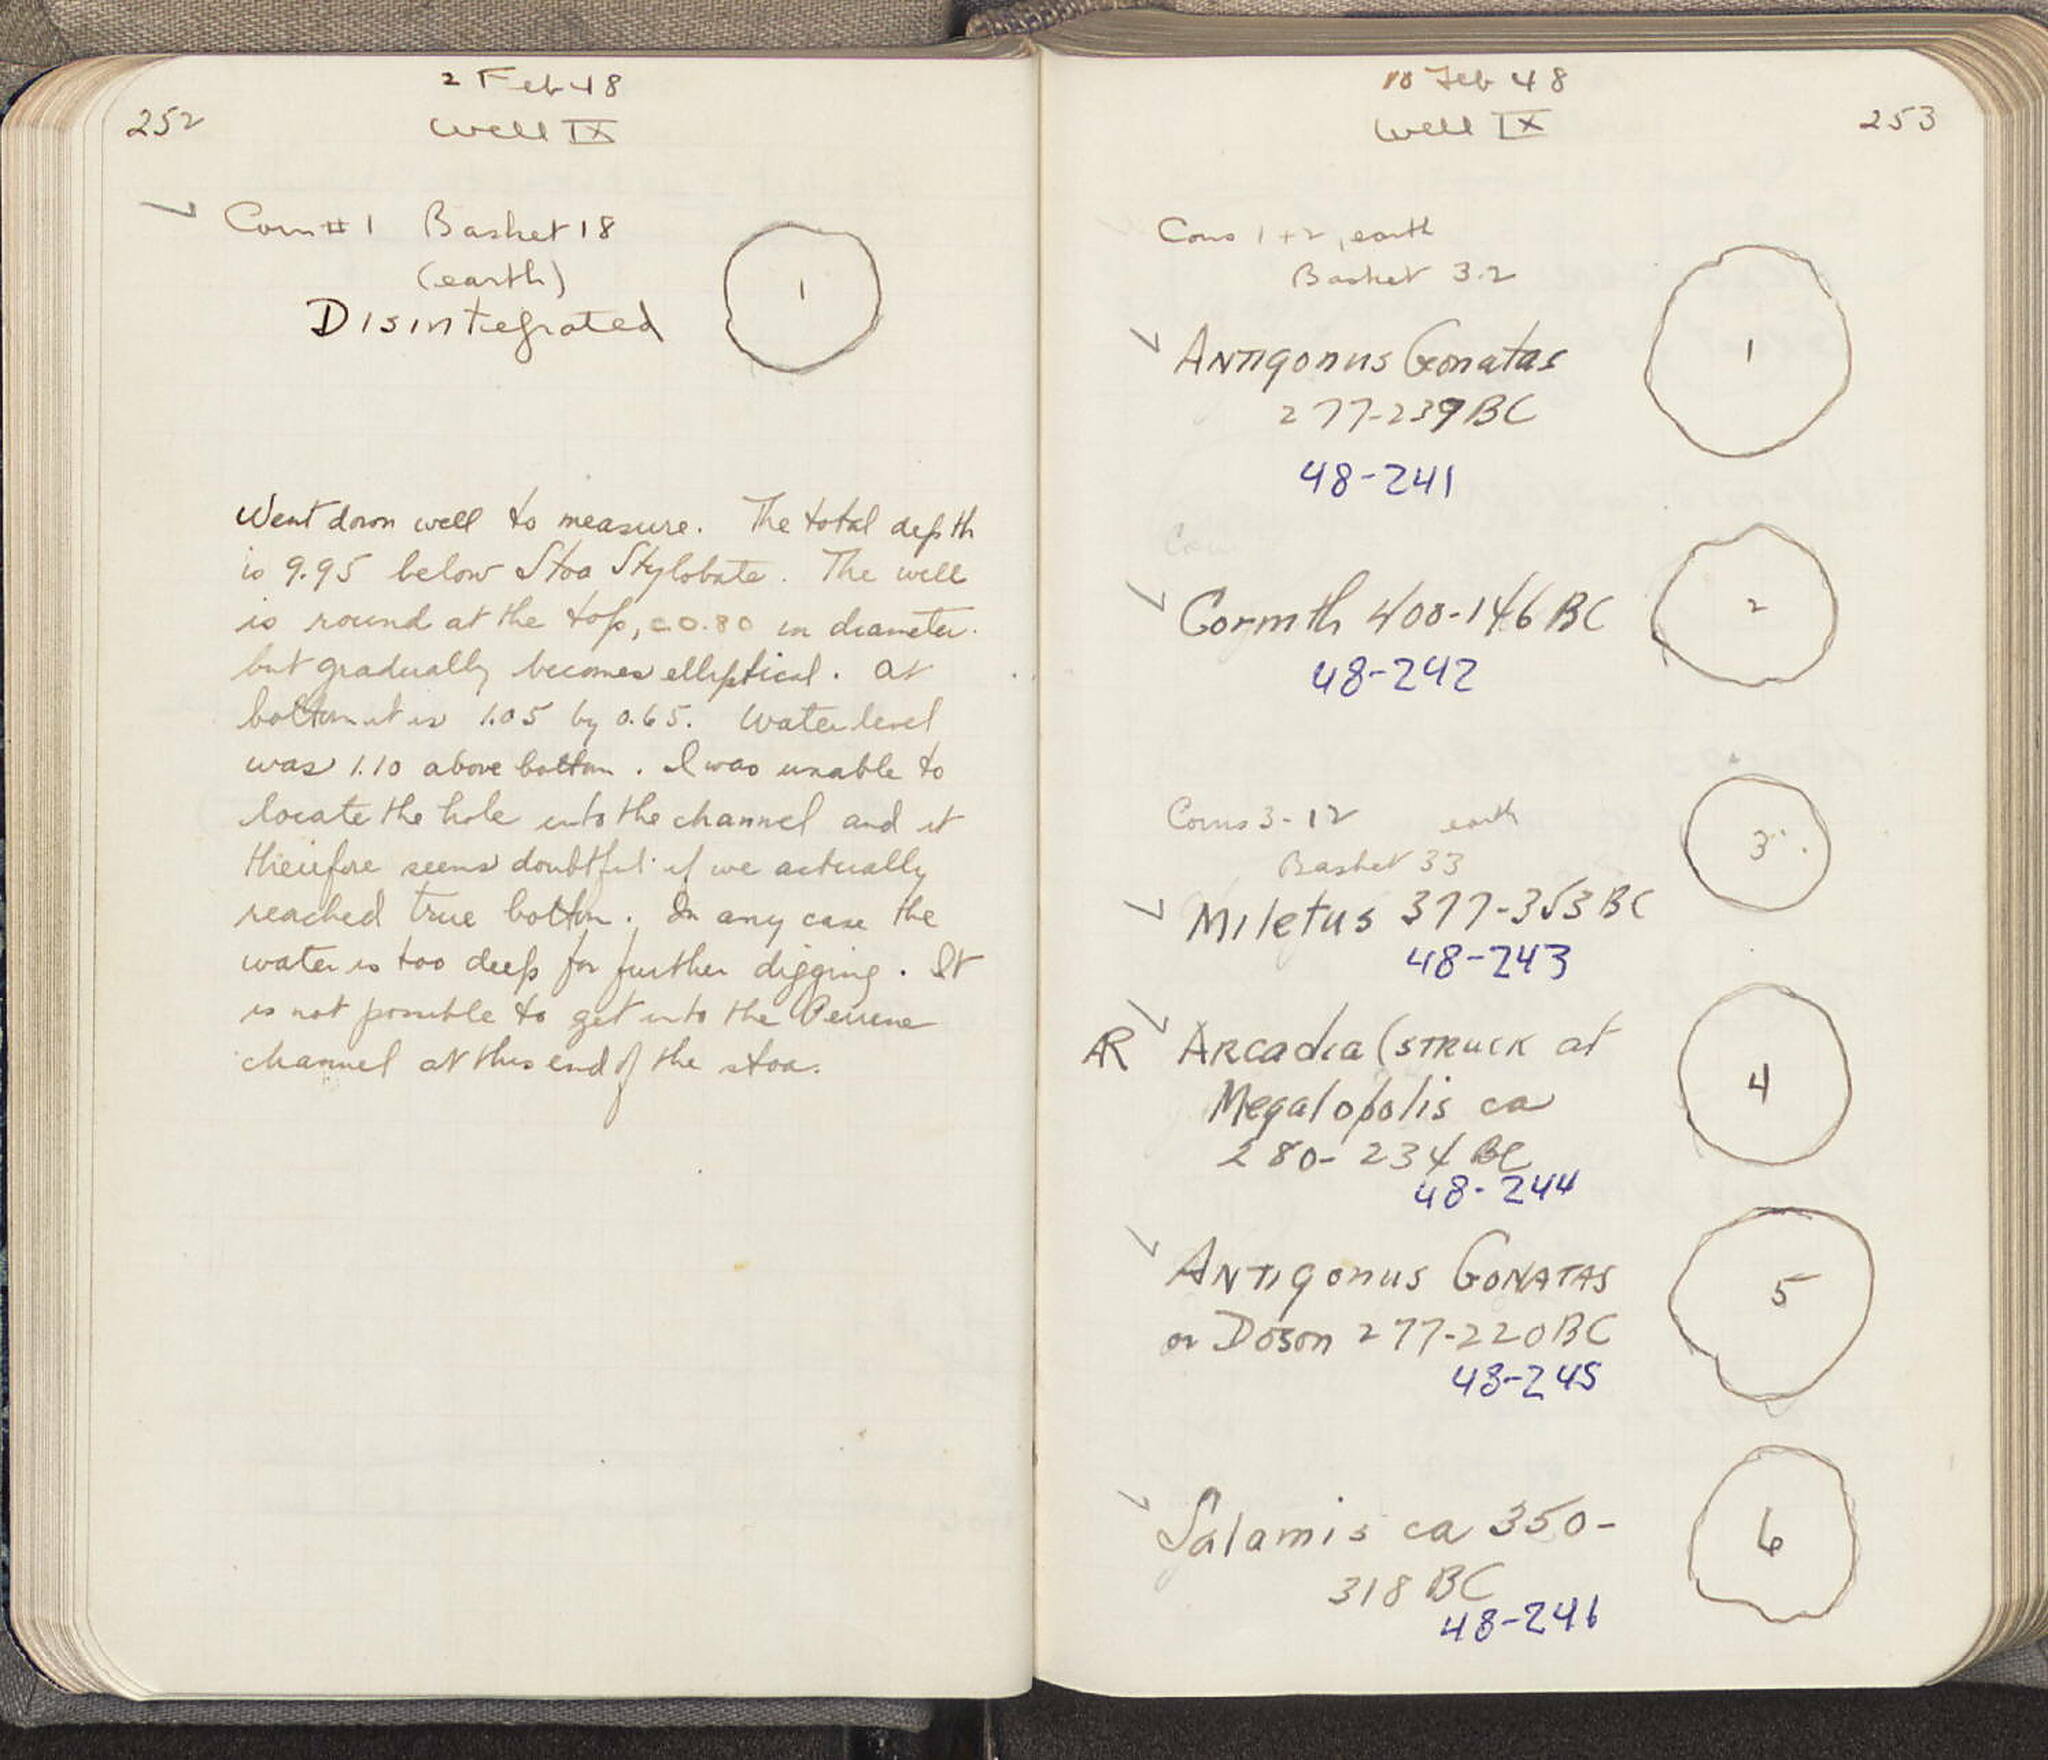 2 Feb 48
252
Well IX
Coin #1 Basket 18
(earth)
Disintegrated
1
Went down well to measure. The total depth
is 9.95 below Stoa Stylobate. The well
is round at the top, c 0.80 in diameter.
but gradually becomes elliptical. At
bottom it is 1.05 by 0.65. Water level
was 1.10 above bottom. I was unable to
locate the hole into the channel and it
therefore seems doubtful if we actually
reached true bottom. In any case the
water is too deep for further digging. It
is not possible to get into the Peirene
channel at this end of the stoa.
10 Feb 48
253
Well IX
Coins 1+2, earth
Basket 32
Antigonus Gonatas
277-239 BC
1
48-241
Corinth 400-146 BC
2
48-242
Coins 3-12 earth
Basket 33
3
Miletus 377-353 BC
48-243
AR Arcadia (struck at
Megalopolis ca
4
280-234 BC
48-244
Antigonus Gonatas
5
or Doson 277-220 BC
48-245
Salamis ca 350-
6
318 BC
48-246